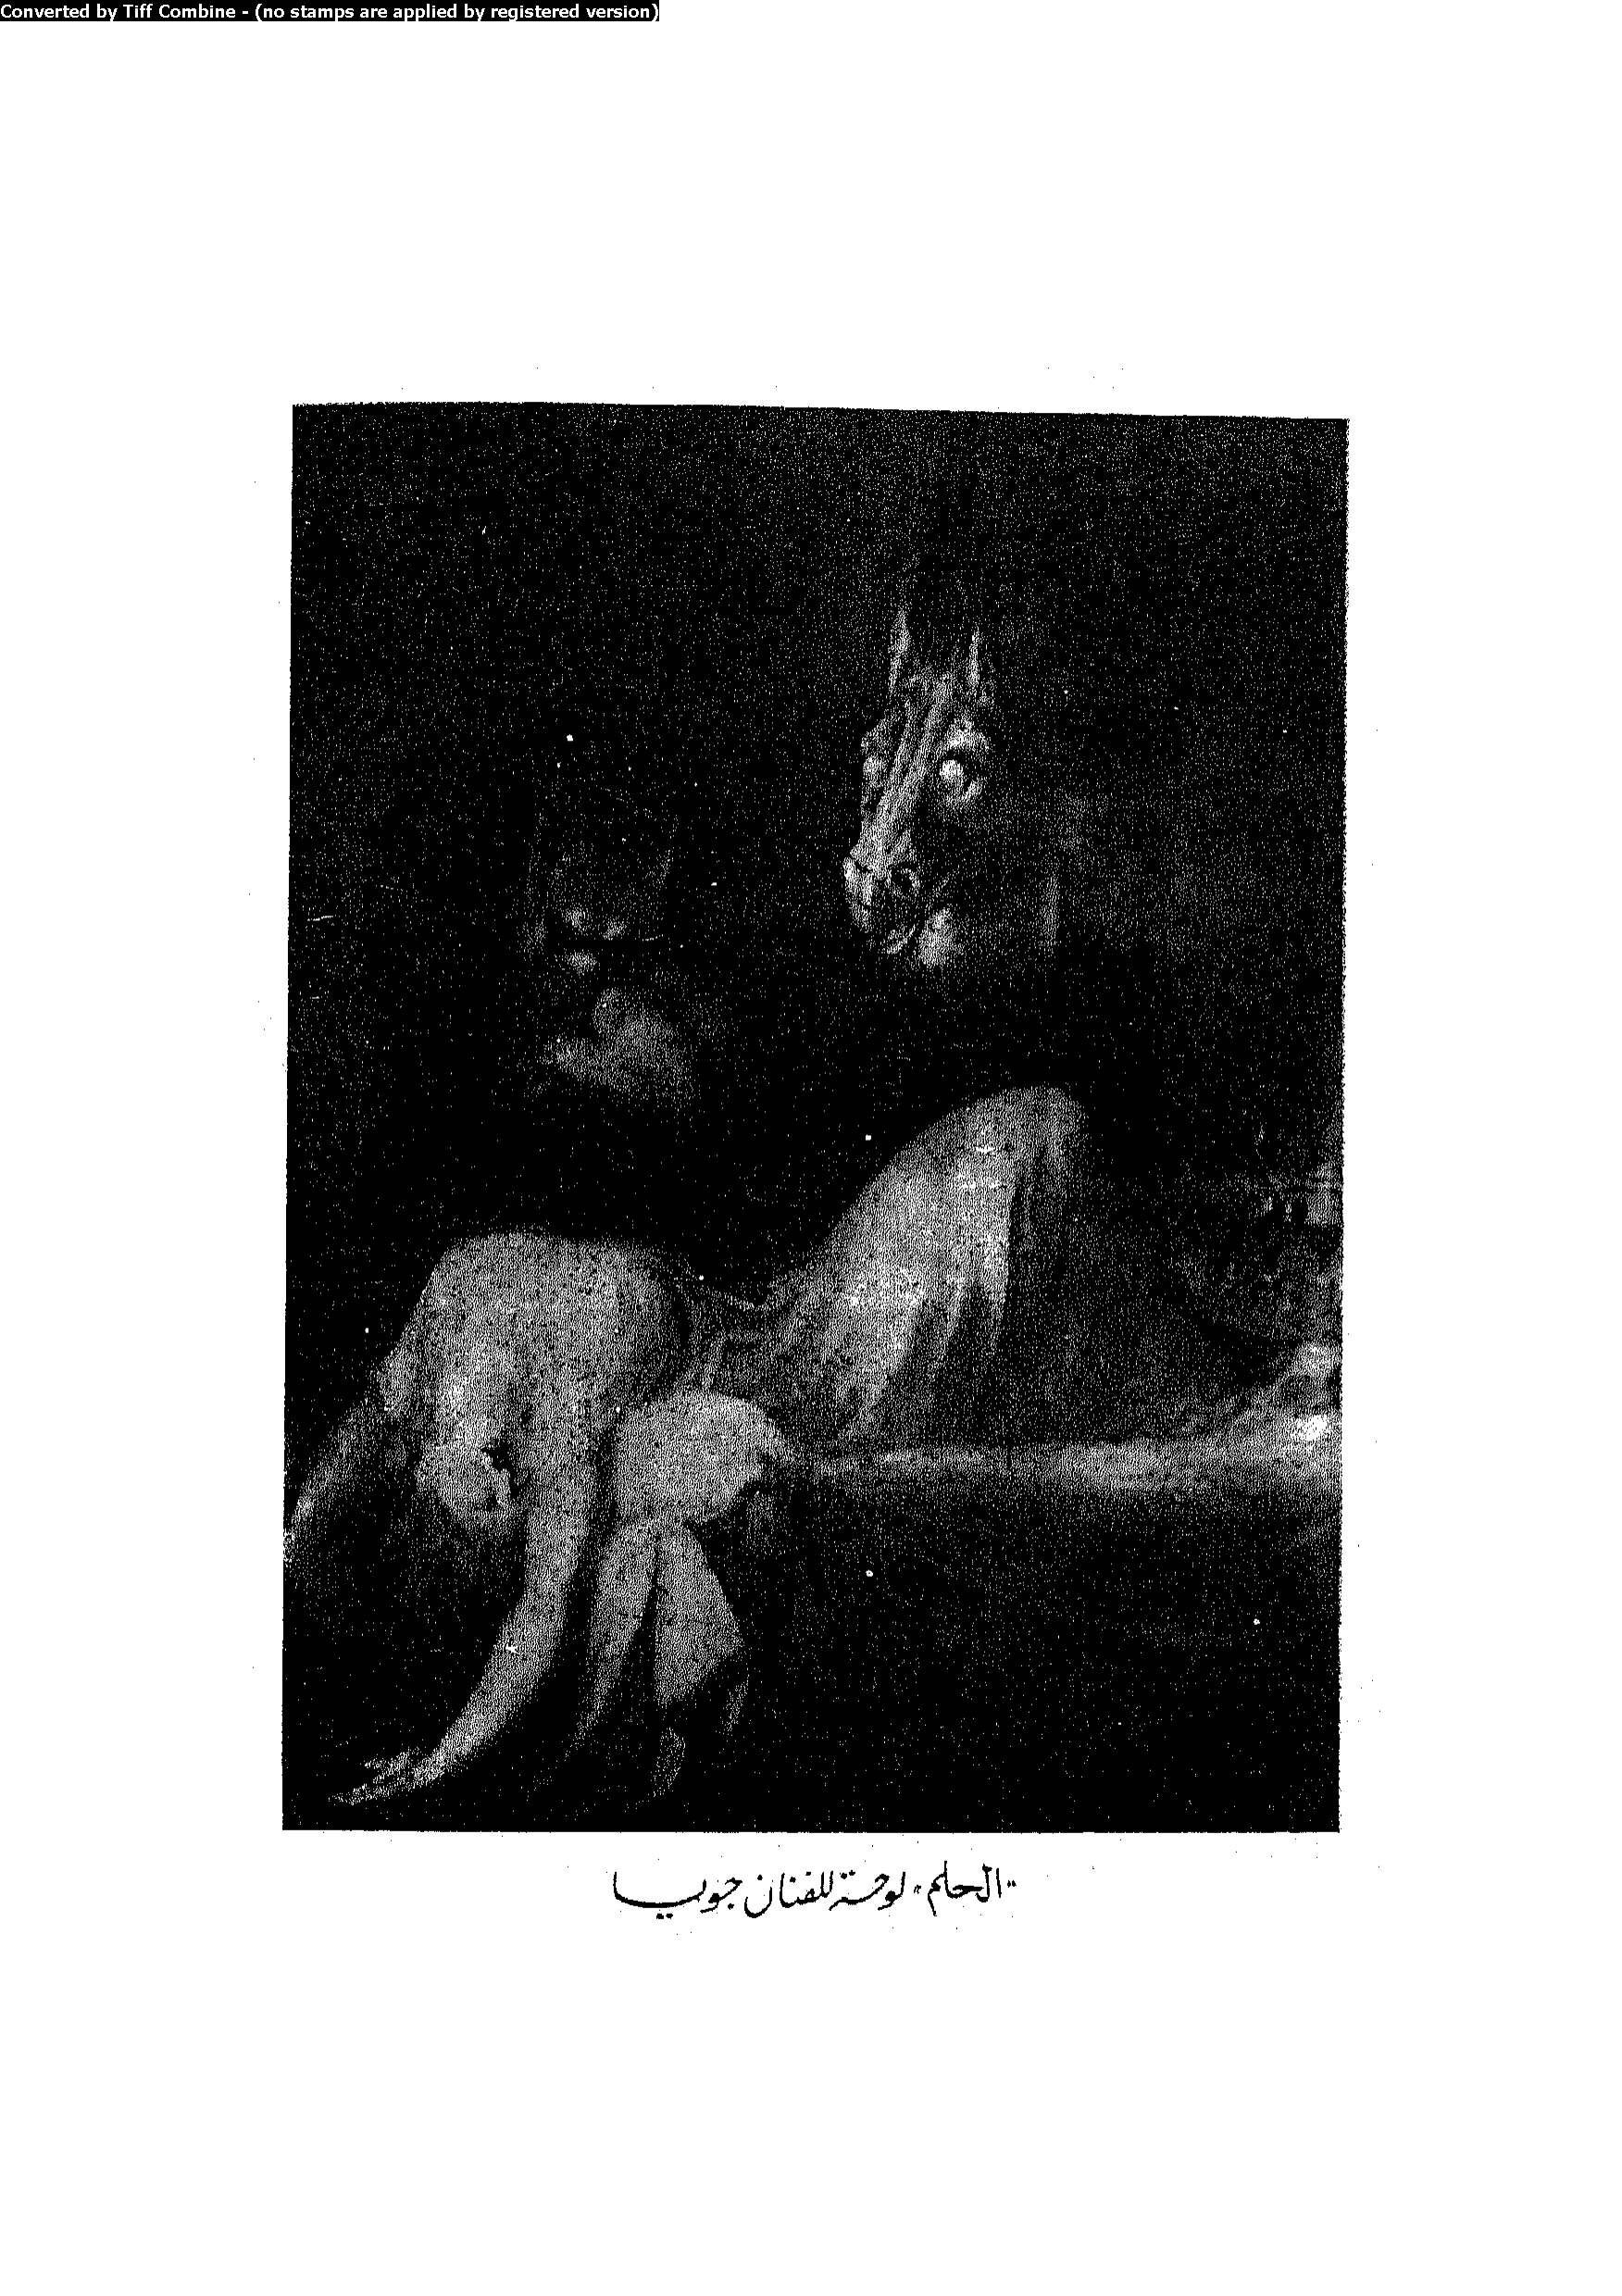 Converted by Tiff Combine - (no stamps are applied by registered version)
"الحلم" لوحة للفنان جويا